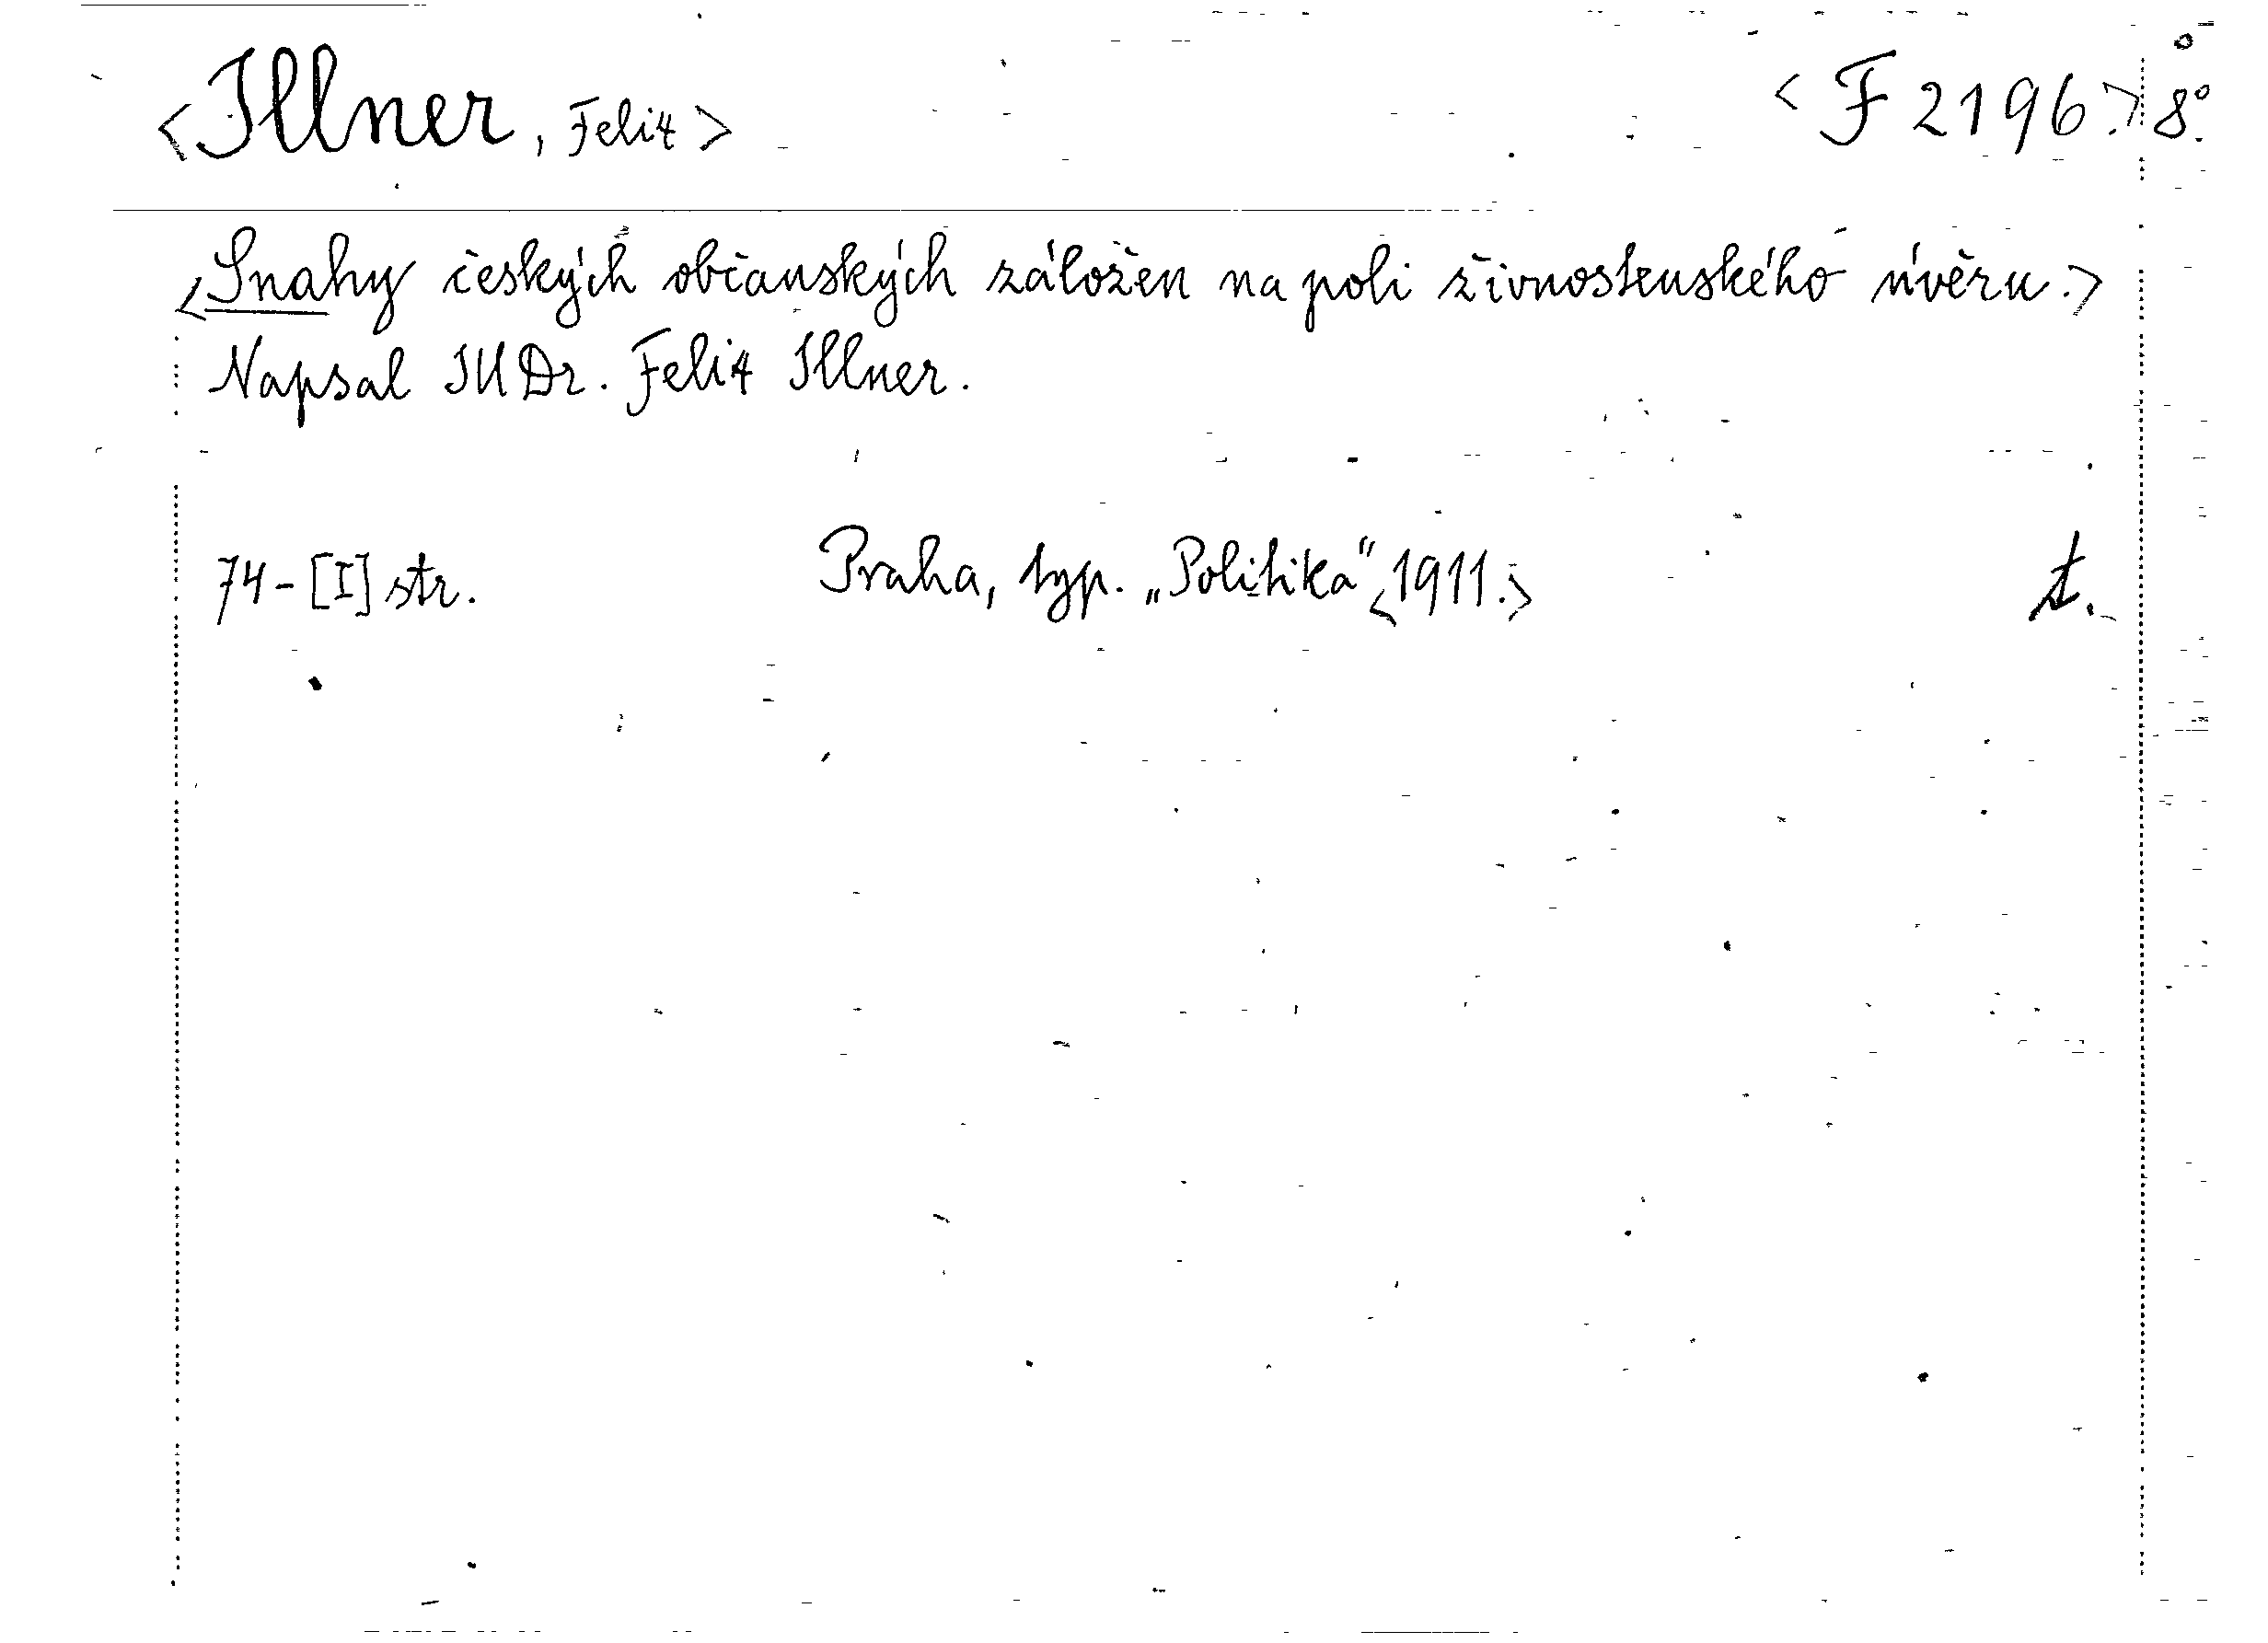 <Illner, Felix> <F 2196.> 8°
<Snahy českých občanských záložen na poli živnostenského úvěru.>
Napsal JUDr. Felix Illner.
74-[I] str. Praha, typ. „Politika“ <1911.> t.